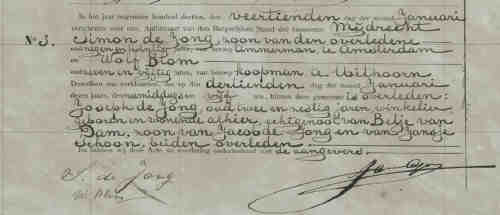 In het jaar negentien honderd dertien, den veertienden dag der maand Januari
verscheen voor ons, Ambtenaar van den Burgerlijken Stand der Gemeente Mijdrecht
No 3. Simon de Jong, zoon van den overledene
jaren, van beroep timmerman, te Amsterdam
en Wolf Blom
zeven en vijftig jaren, van beroep koopman, te Uithoorn
Dewelken ons verklaarden, dat op den dertienden dag der maand Januari
dezes jaars, des middags ten ure, binnen deze gemeente is overleden:
Joseph de Jong, oud twee en zestig jaren, winkelier
geboren en wonende alhier, echtgenoot van Betje van
Dam, zoon van Jacob de Jong en van Jansje
Schoon, beiden overleden.
En hebben wij deze Acte na voorlezing onderteekend met de aangevers.
S. de Jong
W. Blom